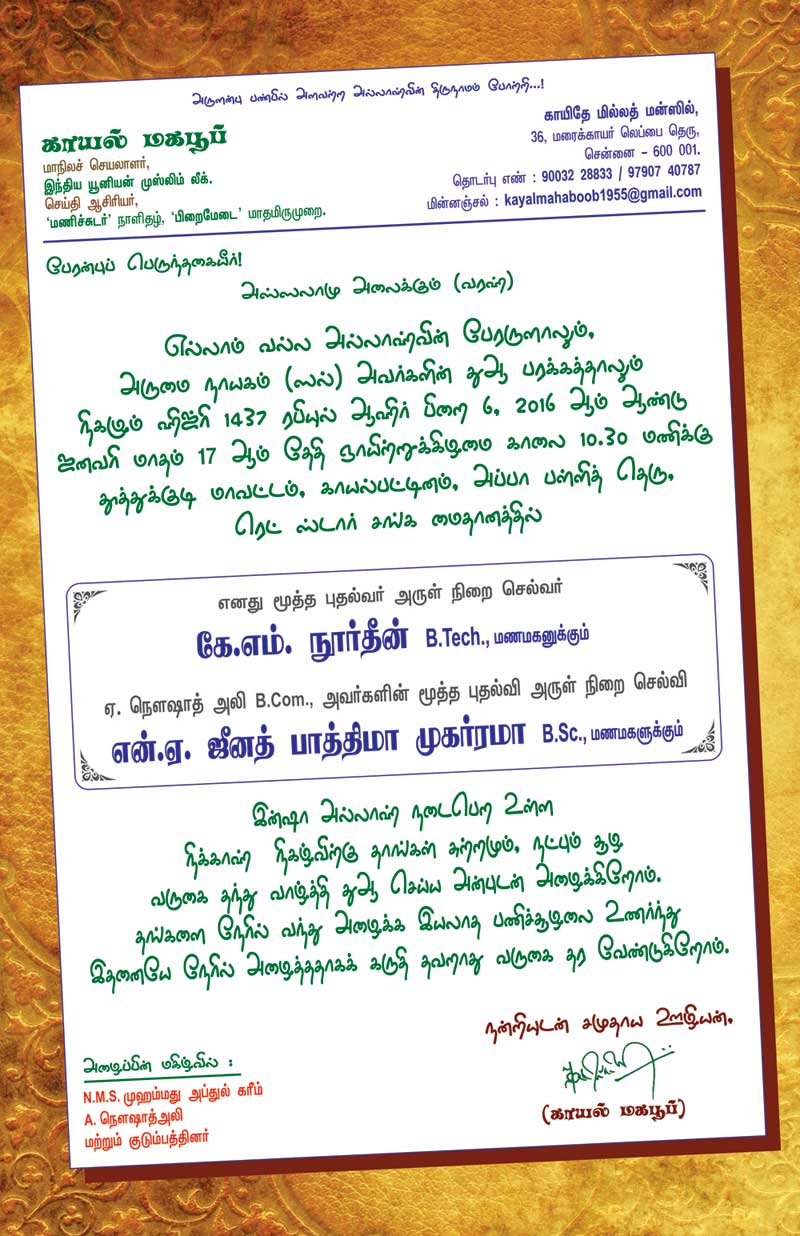 அருளன்பு பண்பில் அளவற்ற அல்லாஹ்வின் திருநாமம் போற்றி...!
காயல் மகபூப்
மாநிலச் செயலாளர்,
இந்திய யூனியன் முஸ்லிம் லீக்.
செய்தி ஆசிரியர்,
‘மணிச்சுடர்’ நாளிதழ், ‘பிறைமேடை’ மாதமிருமுறை.
காயிதே மில்லத் மன்ஸில்,
36, மரைக்காயர் லெப்பை தெரு,
சென்னை – 600 001.
தொடர்பு எண் : 90032 28833 / 97907 40787
மின்னஞ்சல் : kayalmahaboob1955@gmail.com
பேரன்புப் பெருந்தகையீர்!
அஸ்ஸலாமு அலைக்கும் (வரஹ்)
எல்லாம் வல்ல அல்லாஹ்வின் பேரருளாலும்,
அருமை நாயகம் (ஸல்) அவர்களின் துஆ பரக்கத்தாலும்
நிகழும் ஹிஜ்ரி 1437 ரபியுல் ஆஹிர் பிறை 6, 2016 ஆம் ஆண்டு
ஜனவரி மாதம் 17 ஆம் தேதி ஞாயிற்றுக்கிழமை காலை 10.30 மணிக்கு
தூத்துக்குடி மாவட்டம், காயல்பட்டினம், அப்பா பள்ளித் தெரு,
ரெட் ஸ்டார் சங்க மைதானத்தில்
எனது மூத்த புதல்வர் அருள் நிறை செல்வர்
கே.எம். நூர்தீன் B.Tech., மணமகனுக்கும்
ஏ. நௌஷாத் அலி B.Com., அவர்களின் மூத்த புதல்வி அருள் நிறை செல்வி
என்.ஏ. ஜீனத் பாத்திமா முகர்ரமா B.Sc., மணமகளுக்கும்
இன்ஷா அல்லாஹ் நடைபெற உள்ள
நிக்காஹ் நிகழ்விற்கு தாங்கள் சுற்றமும், நட்பும் சூழ
வருகை தந்து வாழ்த்தி துஆ செய்ய அன்புடன் அழைக்கிறோம்.
தங்களை நேரில் வந்து அழைக்க இயலாத பணிச்சூழலை உணர்ந்து
இதனையே நேரில் அழைத்ததாகக் கருதி தவறாது வருகை தர வேண்டுகிறோம்.
நன்றியுடன் சமுதாய ஊழியன்,
(காயல் மகபூப்)
அழைப்பின் மகிழ்வில் :
N.M.S. முஹம்மது அப்துல் கரீம்
A. நௌஷாத்அலி
மற்றும் குடும்பத்தினர்